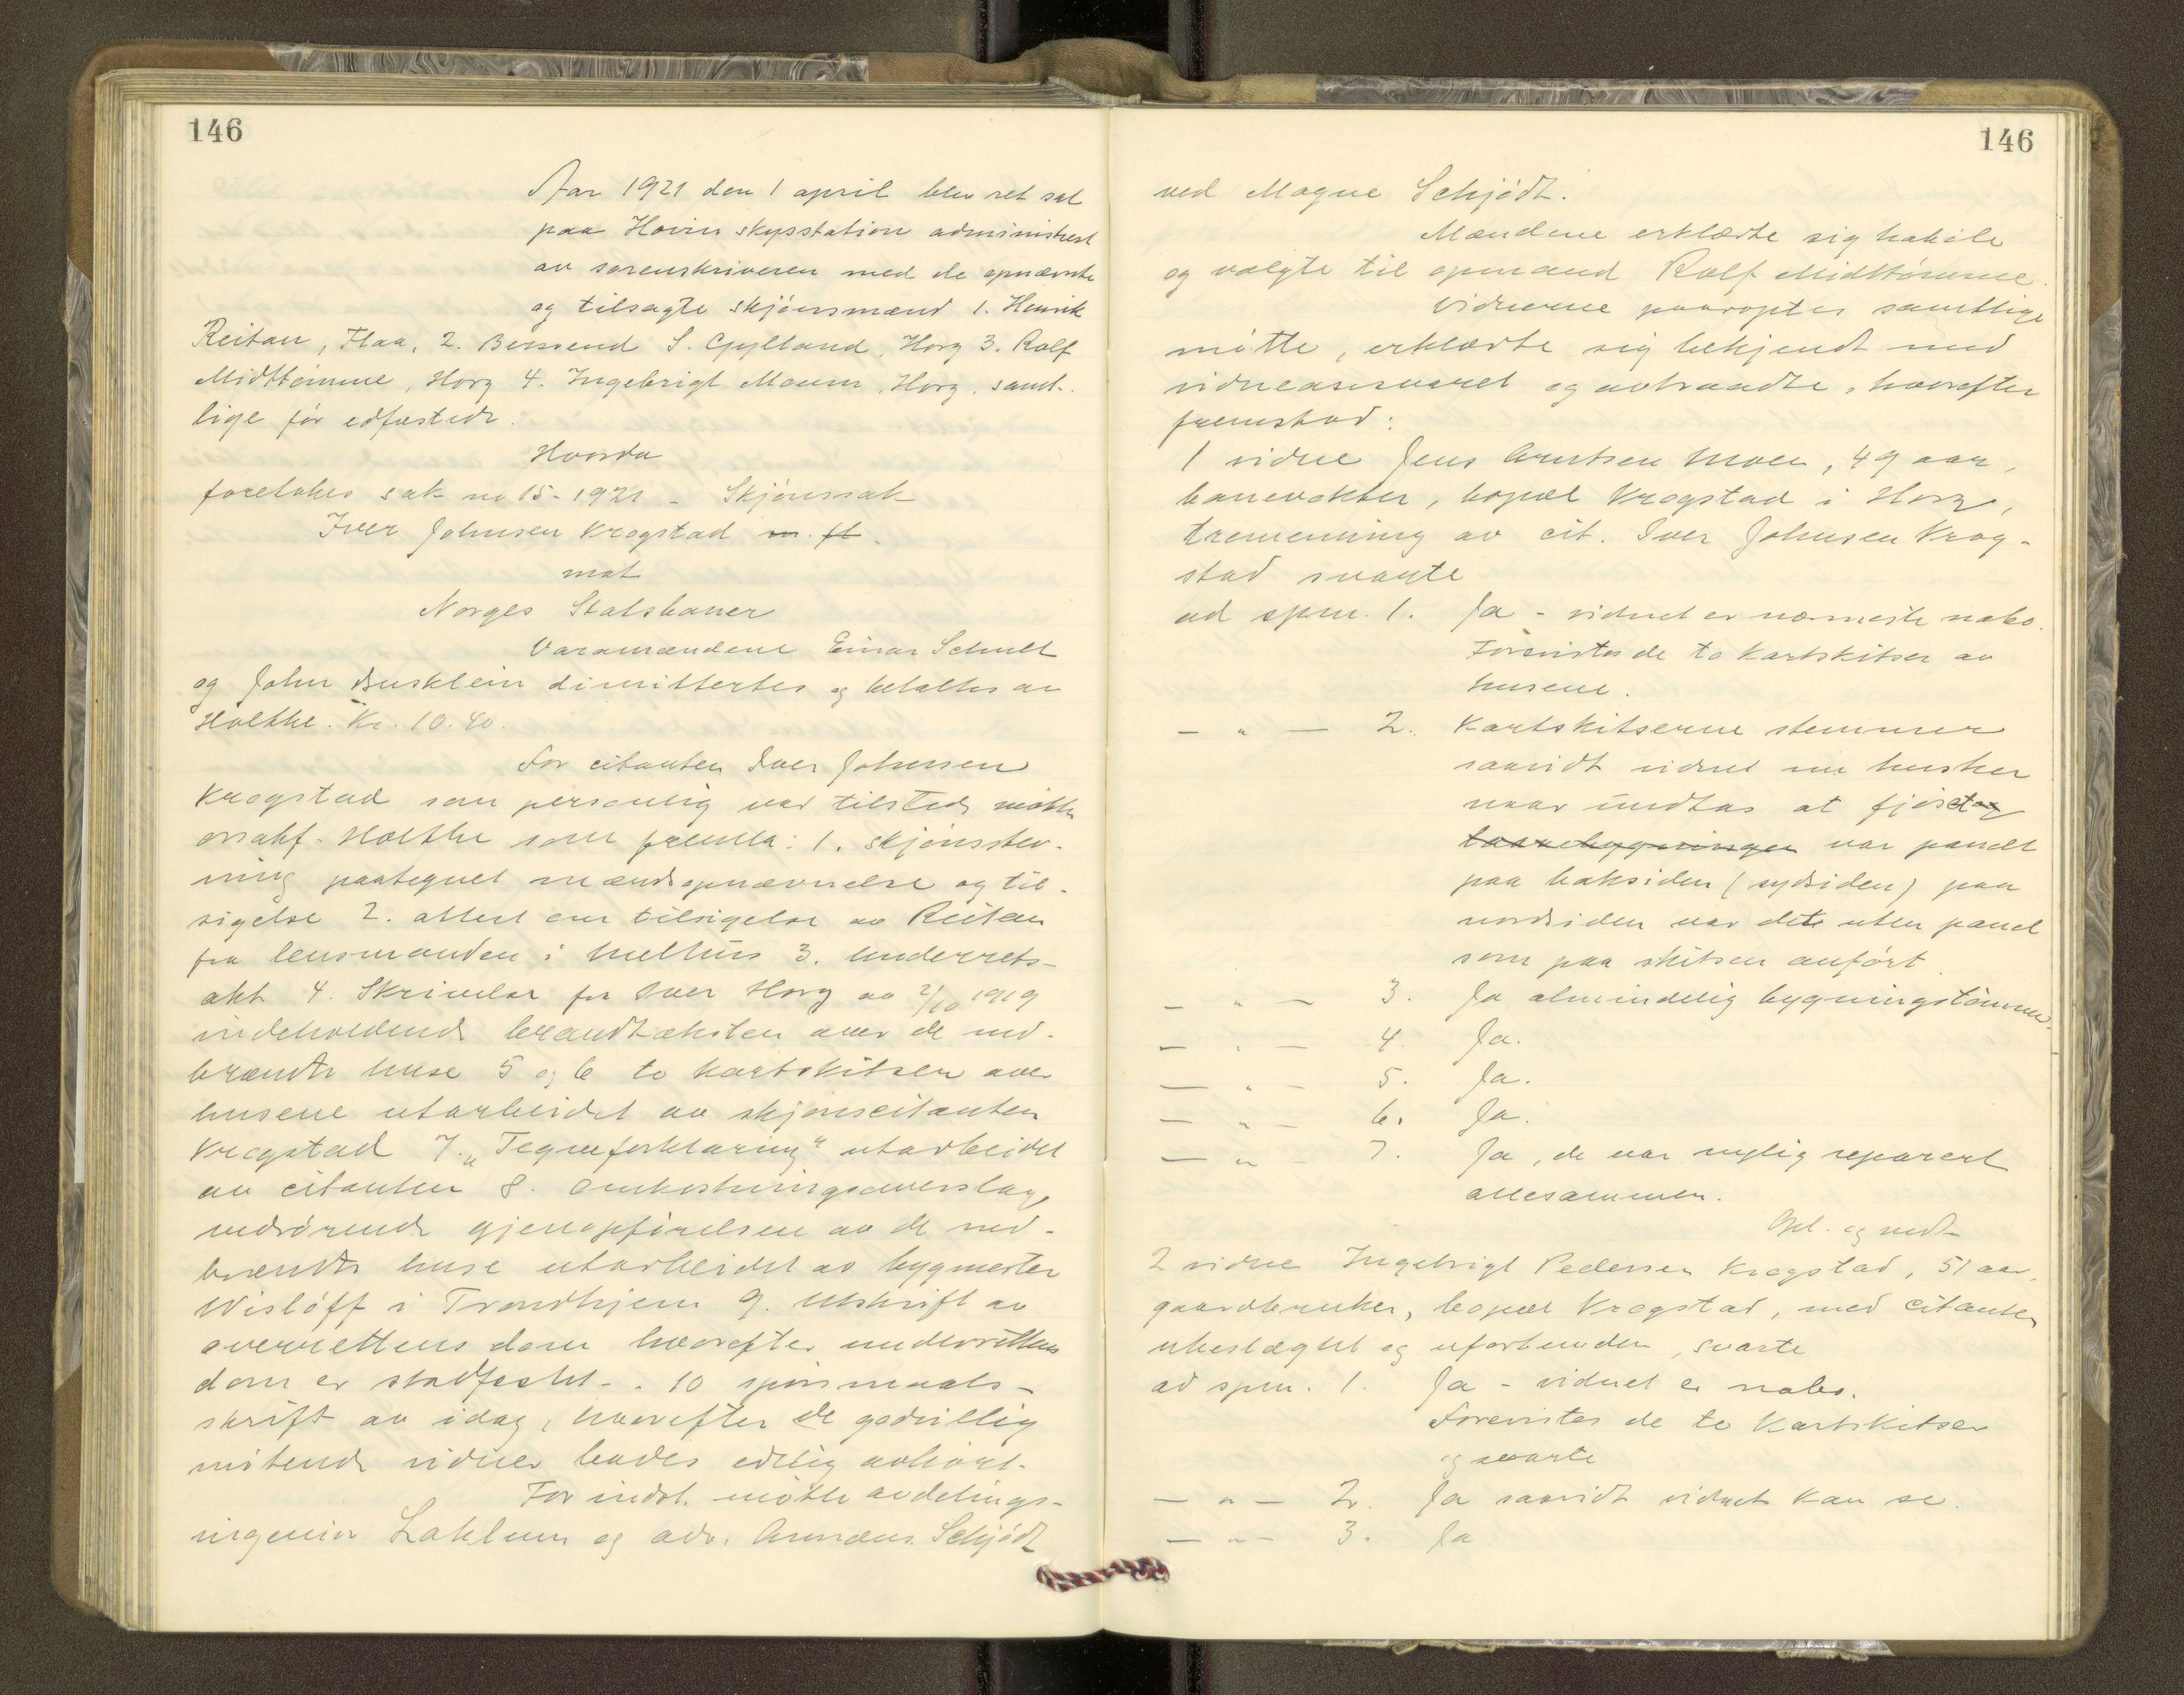 146
Aar 1921 den 1 april blev ret sat
paa Hovin skysstation administrert
av sorenskriveren med de opnævnte
og tilsagte skjønsmænd 1. Henrik
Reitan, Flaa, 2. S. Gylland, Horg 3. Rolf
Midttømme, Horg 4. Ingebrigt Moum, Horg, samt-
lige før edfæstede.
Hvorda
foretokes sak no 15-1921 - Skjønssak
Iver Johnsen Krogstad m. fl.
mot
Norges Statsbaner
Varamændene Einar Schult
og John Busklein dimittertes og betaltes av
Holthe. Kr. 10.40.
For citanten Iver Johnsen
Krogstad som personlig var tilstede møtte
orsakf. Holthe som fremla: 1. skjønsstev-
ning paategnet mændsopnævnelse og til-
sigelse 2. attest om tilsigelse av Reitan
fra lensmanden i Melhus 3. Underrets-
akt 4. Skrivelse fra Iver Horg av 2/10 1919
indeholdende brandtaksten over de ned-
brændte huse 5 og 6 to kartskitser over
husene utarbeidet av skjønscitanten
Krogstad 7. „Tegnforklaring“ utarbeidet
av citanten 8. Omkostningsoverslag
vedrørende gjenopførelsen av de ned-
brændte huse utarbeidet av bygmester
Wisløff i Trondhjem 9. Utskrift av
overrettens dom hvorefter underrettens
dom er stadfæstet - . 10 spørsmaals-
skrift av idag, hvorefter de godvillig
møtende vidner bedes edelig avhørt.
For indst. møtte avdelings-
ingeniør Laklum og adv. Annæus Schjødt
146
ved Magne Schjødt.
Mændene erklærte sig habile
og valgte til opmand Rolf Midttømme.
Vidnerne paaroptes samtlige
møtte, erklærte sig bekjendt med
vidneansvaret og avtraadte, hvorefter
fremstod:
1 vidne Jens Arntsen Moen, 49 aar,
banevokter, bopæl Krogstad i Horg,
tremenning av cit. Iver Johnsen Krog-
stad svarte
ad spm. 1. Ja - vidnet er nærmeste nabo.
Forevistes de to kartskitser av
husene.
— " — 2. Kartskitserne stemmer
saavidt vidnet nu husker
naar undtas at fjøset og
laavebygningen var panelt
paa baksiden (sydsiden) paa
nordsiden var det uten panel
som paa skitsen anført.
— " — 3. Ja almindelig bygningstømmer.
— " — 4. Ja.
— " — 5. Ja.
— " — 6. Ja.
— " — 7. Ja, de var nylig reparert
allesammen.
Opl. og vedt.
2 vidne Ingebrigt Pedersen Krogstad, 51 aar,
gaardbruker, bopæl Krogstad, med citanten
ubeslægtet og uforbunden, svarte
ad spm. 1. Ja - vidnet er nabo.
Forevistes de to kartskitser
og svarte
— " — 2. Ja saavidt vidnet kan se.
— " — 3. Ja